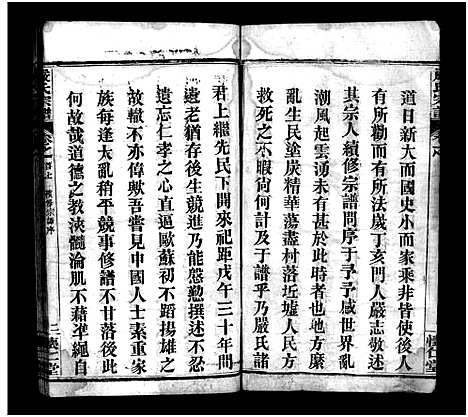 道日新大而國史小而家乘非皆使後人
有所勸而有所法歲丁亥門人嚴志敬述
其宗人續修宗譜問序于予予感世界亂
潮風起雲湧未有甚於此時者也地方糜
亂生民塗炭精華蕩盡村落近墟人民方
救死之不暇尙何計及于譜乎乃嚴氏諸
君上繼先民下開來祀距戊午三十年間
遺老猶存後生競進乃能慇懃撰述不忍
遺忘仁孝之心直逼歐蘇初不蹈揚雄之
故轍不亦偉歟吾嘗見中國人士素重家
族每逢大亂稍平競事修譜不甘落後此
何故哉道德之教浹髓淪肌不藉準繩自
嚴氏宗譜
卷之首上
序
三
懷仁堂
嚴氏宗譜
懷仁堂